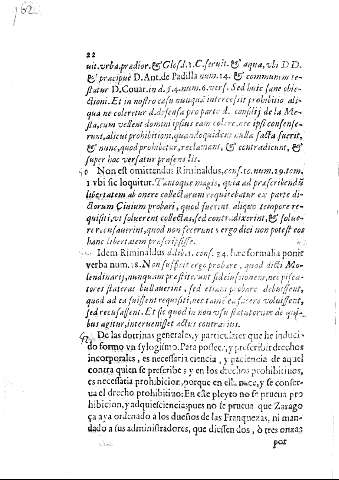 162
22
uit.vrba.prædior.& Glos.d.l.C.seruit.& aqua, vbi DD.
& præcipuè D.Ant.de Padilla num.24. & communem te-
statur D.Couar.in d.§.4.num.6.vers. Sed huic sane obie-
ctioni. Et in nostro casu nunquã intercessit prohibitio ali-
qua ne coleretur d.defensa pro parte d. consilij de la Me-
sta, cum vellent domini ipsius eam colere, nec ipsi consense-
runt, alicui prohibitioni, quandoquidem nulla facta fuerit,
& nunc, quod prohibetur, reclamant, & contradicunt, &
super hoc versatur præsens lis.
Non est omittendus Riminaldus, cons.10.num.19.tom.
1 vbi sic loquitur. Tantoque magis, quia ad præscribendã
libertatem ab onere collectarum requirebatur ex parte di-
ctorum Ciuium probari, quod fuerint aliquo tempore re-
quisiti, vt soluerent collectas, sed contradixerint, & solue-
re recusauerint, quod non fecerunt: ergo dici non potest eos
hanc libertatem præscripsisse.
Idem Riminaldus d.lib.1. cons. 34. hæc formalia ponit
verba num.18. Non sufficit ergo probare, quod dicti Mo-
lendinarij, nunquam præstite-runt fideiussionem, nec pis-
tores frateras bullauerint, sed etiam probare debuissent,
quod ad ea fuissent requisiti, nec tamen ea facere voluissent,
sed recusassent. Et sic quod in non vsu statutorum de qui-
bus agitur, interuenisset actus contrarius.
De las dotrinas generales, y particulares que he induci-
do formo vn sylogismo. Para posseer, y prescribir derechos
incorporales, es necessaria ciencia, y paciencia de aquel
contra quien se prescribe: y en los derechos prohibitiuos,
es necessaria prohibicion, porque en ella nace, y se conser-
ua el derecho prohibitiuo: En este pleyto no se prueua pro
hibicion, y adquiesciencia; pues no se prueua que Zarago
ça aya ordenado a los dueños de las Franquezas, ni man-
dado a sus administradores, que diessen dos, ò tres onzas
por